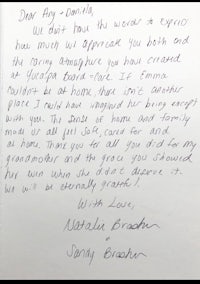 Dear Amy + Daniela,
We don't have the words to express
how much we appreciate you both and
the caring atmosphere you have created
at Yucaipa Board + Care. If Emma
couldn't be at home, there isn't another
place I could have imagined her being except
with you. The sense of home and family
made us all feel safe, cared for and
at home. Thank you for all you did for my
grandmother and the grace you showed
her even when she didn't deserve it.
We will be eternally grateful!
With Love,
Natalie
&
Sandy